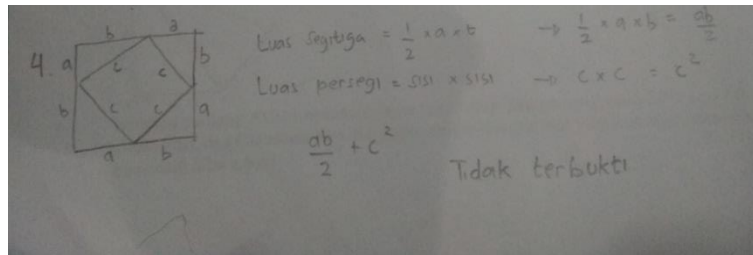 4.
b a
a b
c c
c c
b a
a b
Luas segitiga = 1/2 × a × t → 1/2 × a × b = ab/2
Luas persegi = sisi × sisi → c × c = c²
ab/2 + c²
Tidak terbukti